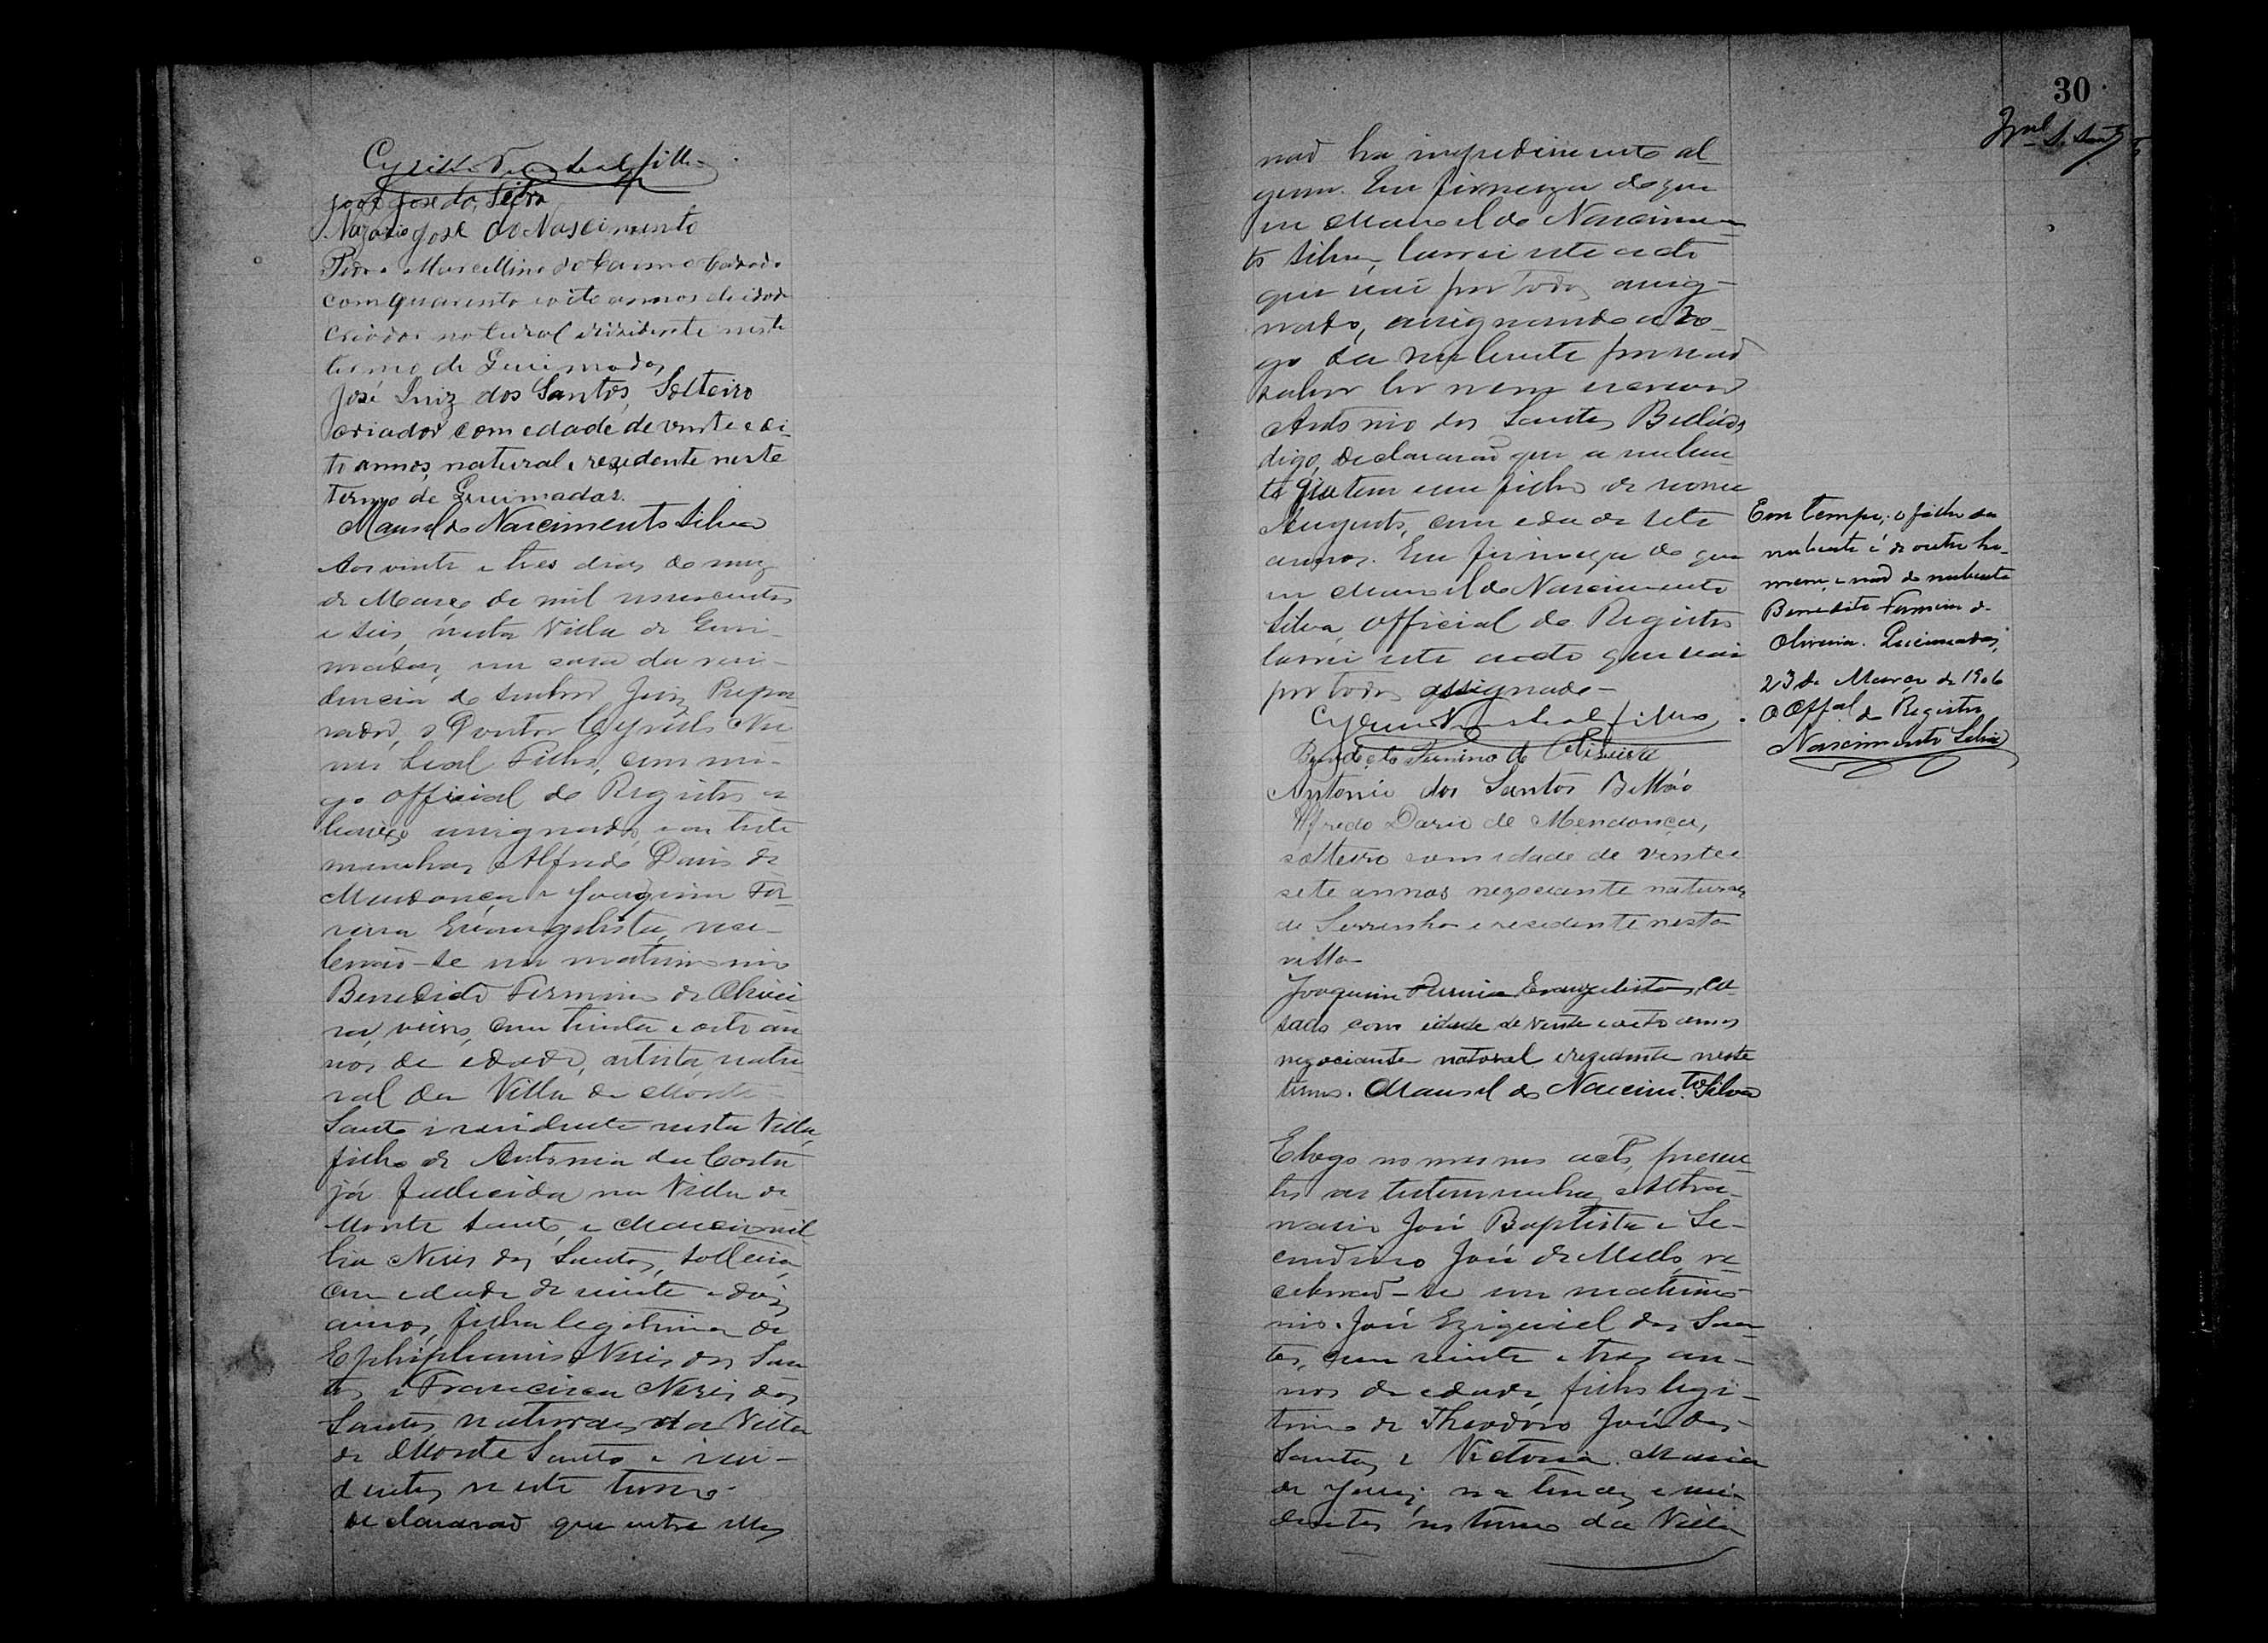 Cyrillo Nunes Leal filho
José José da Silva
Nazario José do Nascimento
Pedro Marcellino do Carmo Casado
com quarenta e oito annos de idade
criador natural e rizidente neste
termo de Queimadas
José Luiz dos Santos, Solteiro
criador com edade de vinte e oi-
to annos, natural e rezidente neste
Termo de Queimadas.
Manuel do Nascimento Silva
Aos vinte e tres dias do mez
de Março de mil novecentos
e seis, nesta Villa de Quei-
madas, em casa da resi-
dencia do senhor Juiz Prepa-
rador, o Doutor Cyrillo Nu-
nes Leal Filho, commi-
go official do Registro a
baixo assignado, e as teste
munhas Alfredo Dario de
Mendonça e Joaquim Fer-
reira Evangelista, rece-
berão-se em matrimonio
Benedicto Firmino de Olivei
ra, viuvo, com trinta e oito an
nos de edade, artista, natu
ral da Villa de Monte
Santo e residente nesta Villa,
filho de Antonia da Costa
já fallecida na Villa de
Monte Santo, e Marcionil
lia Neris dos Santos, solteira,
com edade de vinte e dois
annos, filha legitima de
Ephiphanio Neris dos San
tos e Francisca Neris dos
Santos, naturaes da Villa
de Monte Santo e resi-
dentes neste termo.
declararão que entre elles
30
não ha impedimento al-
gum. Em firmeza do que
eu Manuel do Nascimen-
to Silva, lavrei este acto
que vai por todos assig-
nado, assignando a ro-
go da nubente por não
saber ler nem escrever
Antonio dos Santos Beltrão
digo, declararão que a nuben
te já tem um filho de nome
Augusto, com edade sete
annos. Em firmeza do que
eu Manuel do Nascimento
Silva, official do Registro
lavrei este acto que vai
por todos assignado-
Cyrillo Nunes Leal filho
Benedicto Firmino de Oliveira
Antonio dos Santos Beltrão
Alfredo Dario de Mendonça,
solteiro com idade de vinte e
sete annos negociante natural
de Serrinha e residente nesta
villa
Joaquim Ferreira Evangelista, ca-
sado com idade de vinte e oito annos
negociante natural e rezidente neste
termo. Manuel do Nascim.to Silva
Em tempo; o filho da
nubente é de outro ho-
mem, e não do nubente
Benedicto Firmino de
Oliveira. Queimadas,
23 de Março de 1906
O Offal do Registro
Nascimento Silva
E logo no mesmo acto, presen
tes as testemunhas
José Baptista e Se-
cundino José de Mello, re-
ceberão-se em matrimo-
nio. José Eziquiel dos San-
tos, com vinte e tres an-
nos de edade, filho legi-
timo de Theodoro José dos
Santos e Victoria Maria
de Jesus, naturaes e resi-
dentes no termo da Villa